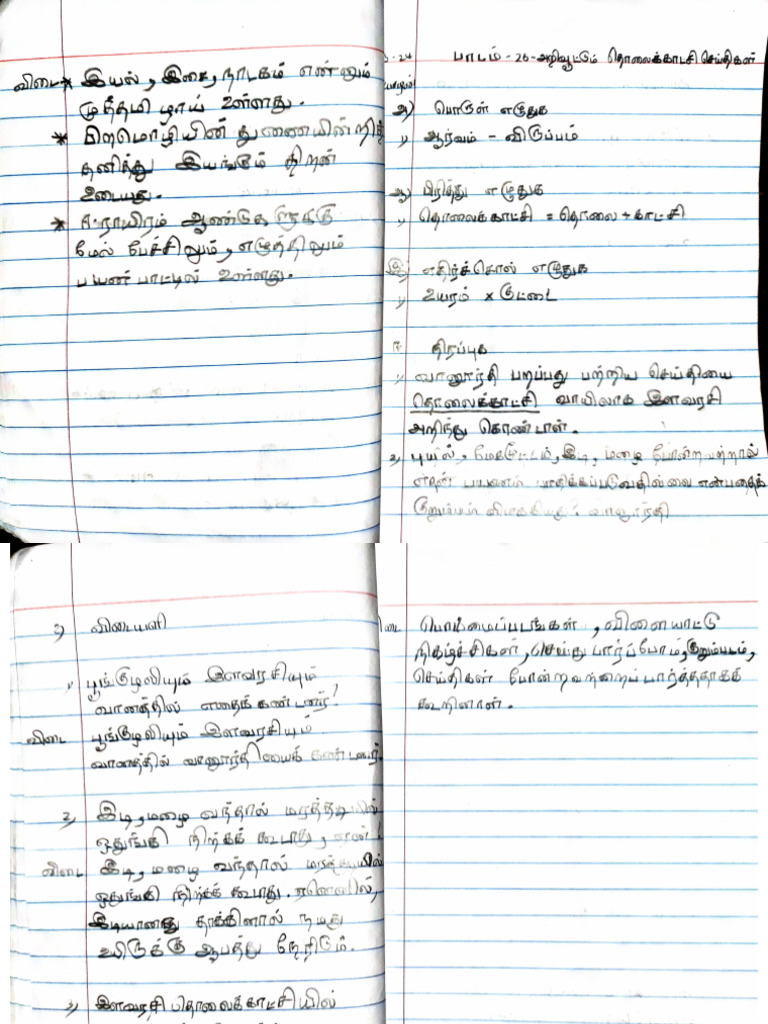 விடை * இயல், இசை, நாடகம் என்னும்
முத்தமிழாய் உள்ளது.
* பிறமொழியின் துணையின்றி
தனித்து இயங்கும் திறன்
உடையது.
* ஈராயிரம் ஆண்டுகளுக்கு
மேல் பேச்சிலும், எழுத்திலும்
பயன்பாட்டில் உள்ளது.
பாடம் - 26 - அறிவூட்டும் தொலைக்காட்சி செய்திகள்
அ) பொருள் எழுதுக
1) ஆர்வம் - விருப்பம்
ஆ) பிரித்து எழுதுக
1) தொலைக்காட்சி = தொலை + காட்சி
இ) எதிர்ச்சொல் எழுதுக
1) உயரம் x குட்டை
ஈ நிரப்புக
1) வானூர்தி பறப்பது பற்றிய செய்தியை
தொலைக்காட்சி வாயிலாக இளவரசி
அறிந்து கொண்டாள்.
2) புயல், மேகமூட்டம், இடி, மழை போன்றவற்றால்
எதன் பயணம் பாதிக்கப்படுவதில்லை என்பதைக்
குறும்படம் விளக்கியது? வானூர்தி
உ) விடையளி
1) பூங்குழலியும் இளவரசியும்
வானத்தில் எதைக் கண்டனர்?
விடை பூங்குழலியும் இளவரசியும்
வானத்தில் வானூர்தியைக் கண்டனர்.
2) இடி, மழை வந்தால் மரத்தடியில்
ஒதுங்கி நிற்கக் கூடாது, ஏன்?
விடை இடி, மழை வந்தால் மரத்தடியில்
ஒதுங்கி நிற்கக் கூடாது. ஏனெனில்,
இடியானது தாக்கினால் நமது
உயிருக்கு ஆபத்து நேரிடும்.
3) இளவரசி தொலைக்காட்சியில்
பொம்மைப்படங்கள், விளையாட்டு
நிகழ்ச்சிகள், செய்து பார்ப்போம், குறும்படம்,
செய்திகள் போன்றவற்றைப் பார்த்ததாகக்
கூறினாள்.